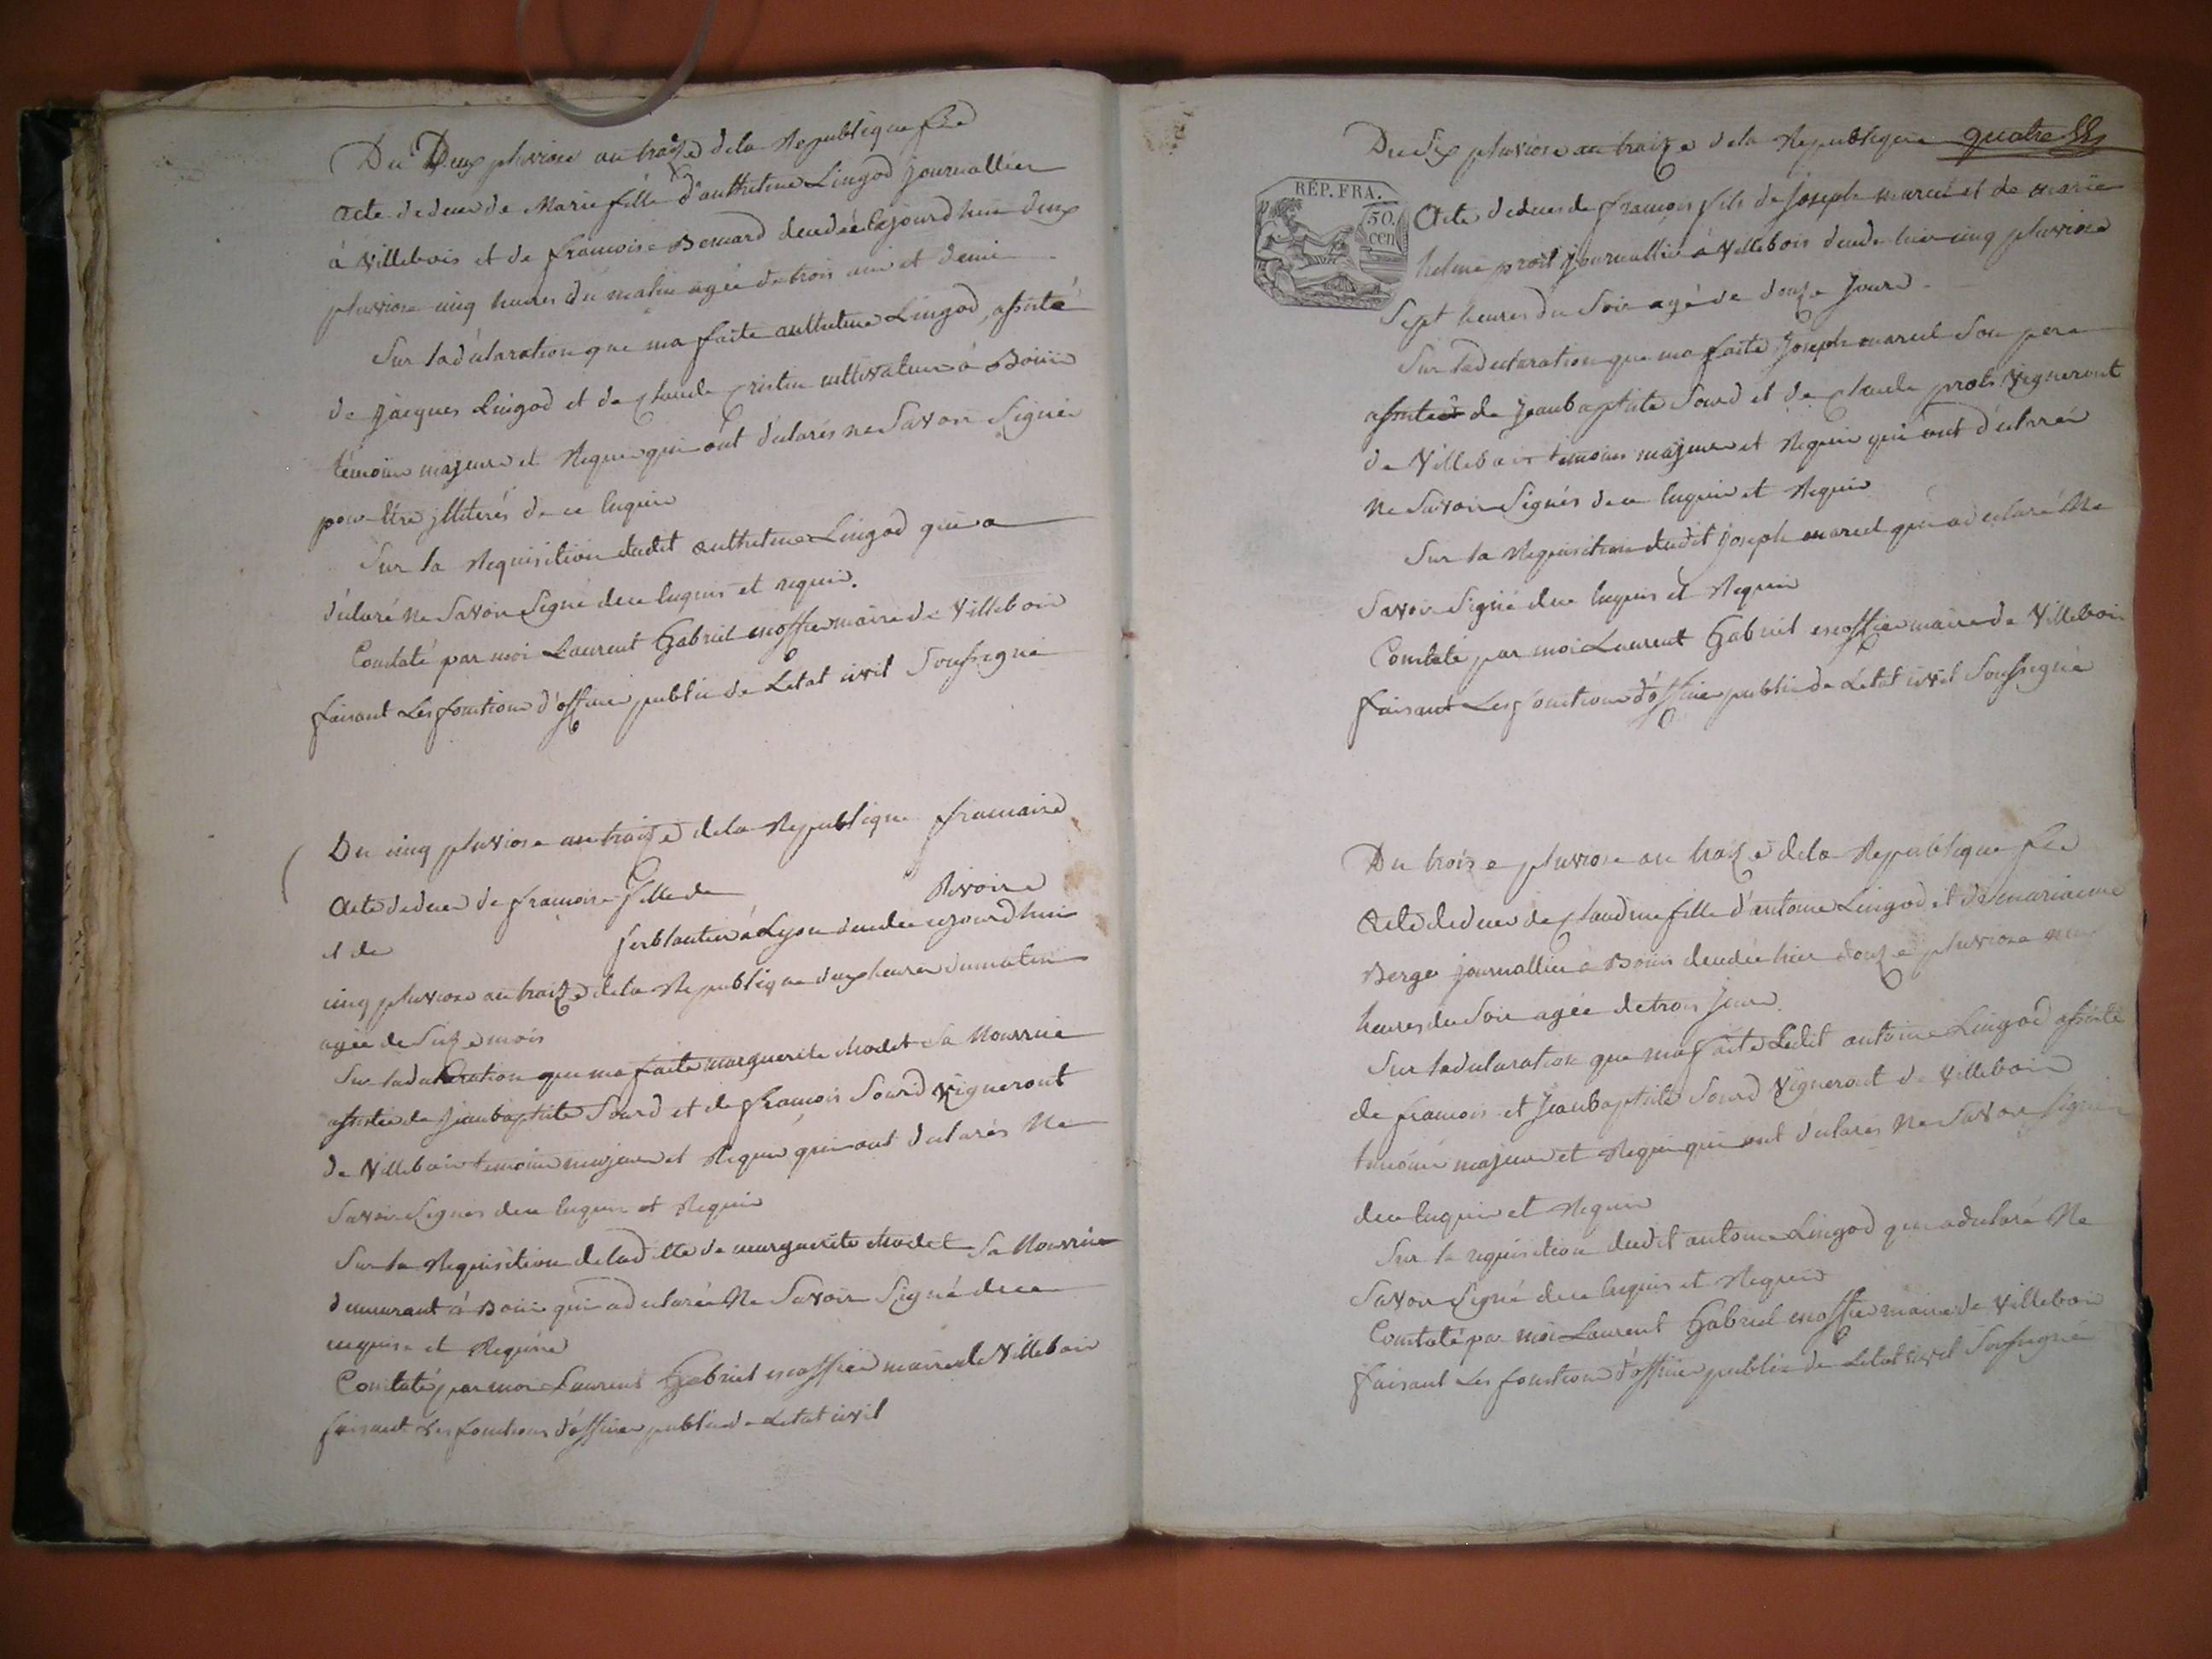 Du Deux pluviose an traize de la Republique fse
acte de deces de Marie fille d'anthelme Lingod journallier
à Villebois et de francoise Bernard decedée cejourdhui deux
pluviose cinq heures du matin agée de trois ans et demi
Sur la déclaration que ma faite anthelme Lingod, assisté
de jacques Lingod et de claude cultivateurs à Bouis
témoins majeurs et Requis qui ont déclarés ne Savoir Signer
pour être jlliterés de ce Enquis
Sur la Requisition dudit anthelme Lingod qui a
déclaré ne Savoir Signé de ce Enquis et requis.
Constaté par moi Laurent Gabriel escoffier maire de Villebois
faisant Les fonctions d'officier public de Letat civil Soussigné
Du cinq pluviose an traize de la Republique francaise
Acte de deces de francoise fille de Rivoire
et de ferblantier à Lyon decedée cejourdhui
cinq pluviose an traize de la Republique deux heures du matin
agée de Seize mois
Sur la declaration que ma faite marguerite Modet Sa Nourrice
assistée de Jeanbaptiste Sourd et de francois Sourd Vigneront
de Villebois temoins majeurs et Requis qui ont declarés Ne
Savoir Signer de ce Enquis et Requis
Sur la Requisition de laditte marguerite Modet Sa Nourrice
demeurant à Bouis qui a declarée Ne Savoir Signé de ce
enquise et Requise
Constaté par moi Laurent Gabriel escoffier maire de Villebois
faisant Les fonctions d'officier public de Letat civil
Du Six pluviose an traize de la Republique quatre
RÉP. FRA.
50.
cen
Acte de deces de francois fils de Joseph marcel et de marie
prost journallier à Villebois decede hier cinq pluviose
Sept heures du Soir agé de douze Jours
Sur la declaration que ma faite Joseph marcel Son pere
assisté de Jeanbaptiste Sourd et de claude prost Vigneront
de Villebois temoins majeurs et Requis qui ont déclarés
Ne Savoir Signés de ce Enquis et Requis
Sur la Requisition dudit Joseph marcel qui a declaré Ne
Savoir Signé de ce Enquis et Requis
Constaté par moi Laurent Gabriel escoffier maire de Villebois
faisant Les fonctions d'officier public de Letat civil Soussigné
Du traize pluviose an traize de la Republique fse
Acte de deces de claudine fille d'antoine Lingod et de marianne
Berge journallier à Bouis decedée hier douze pluviose
heures du Soir agée de trois Jours
Sur la declaration que ma faite Ledit antoine Lingod assisté
de francois et Jeanbaptiste Sourd Vigneront de Villebois
temoins majeurs et Requis qui ont déclarés Ne Savoir Signer
de ce Enquis et Requis
Sur la requisition dudit antoine Lingod qui a declaré Ne
Savoir Signé de ce Enquis et Requis
Constaté par moi Laurent Gabriel escoffier maire de Villebois
faisant Les fonctions d'officier public de Letat civil Soussigné